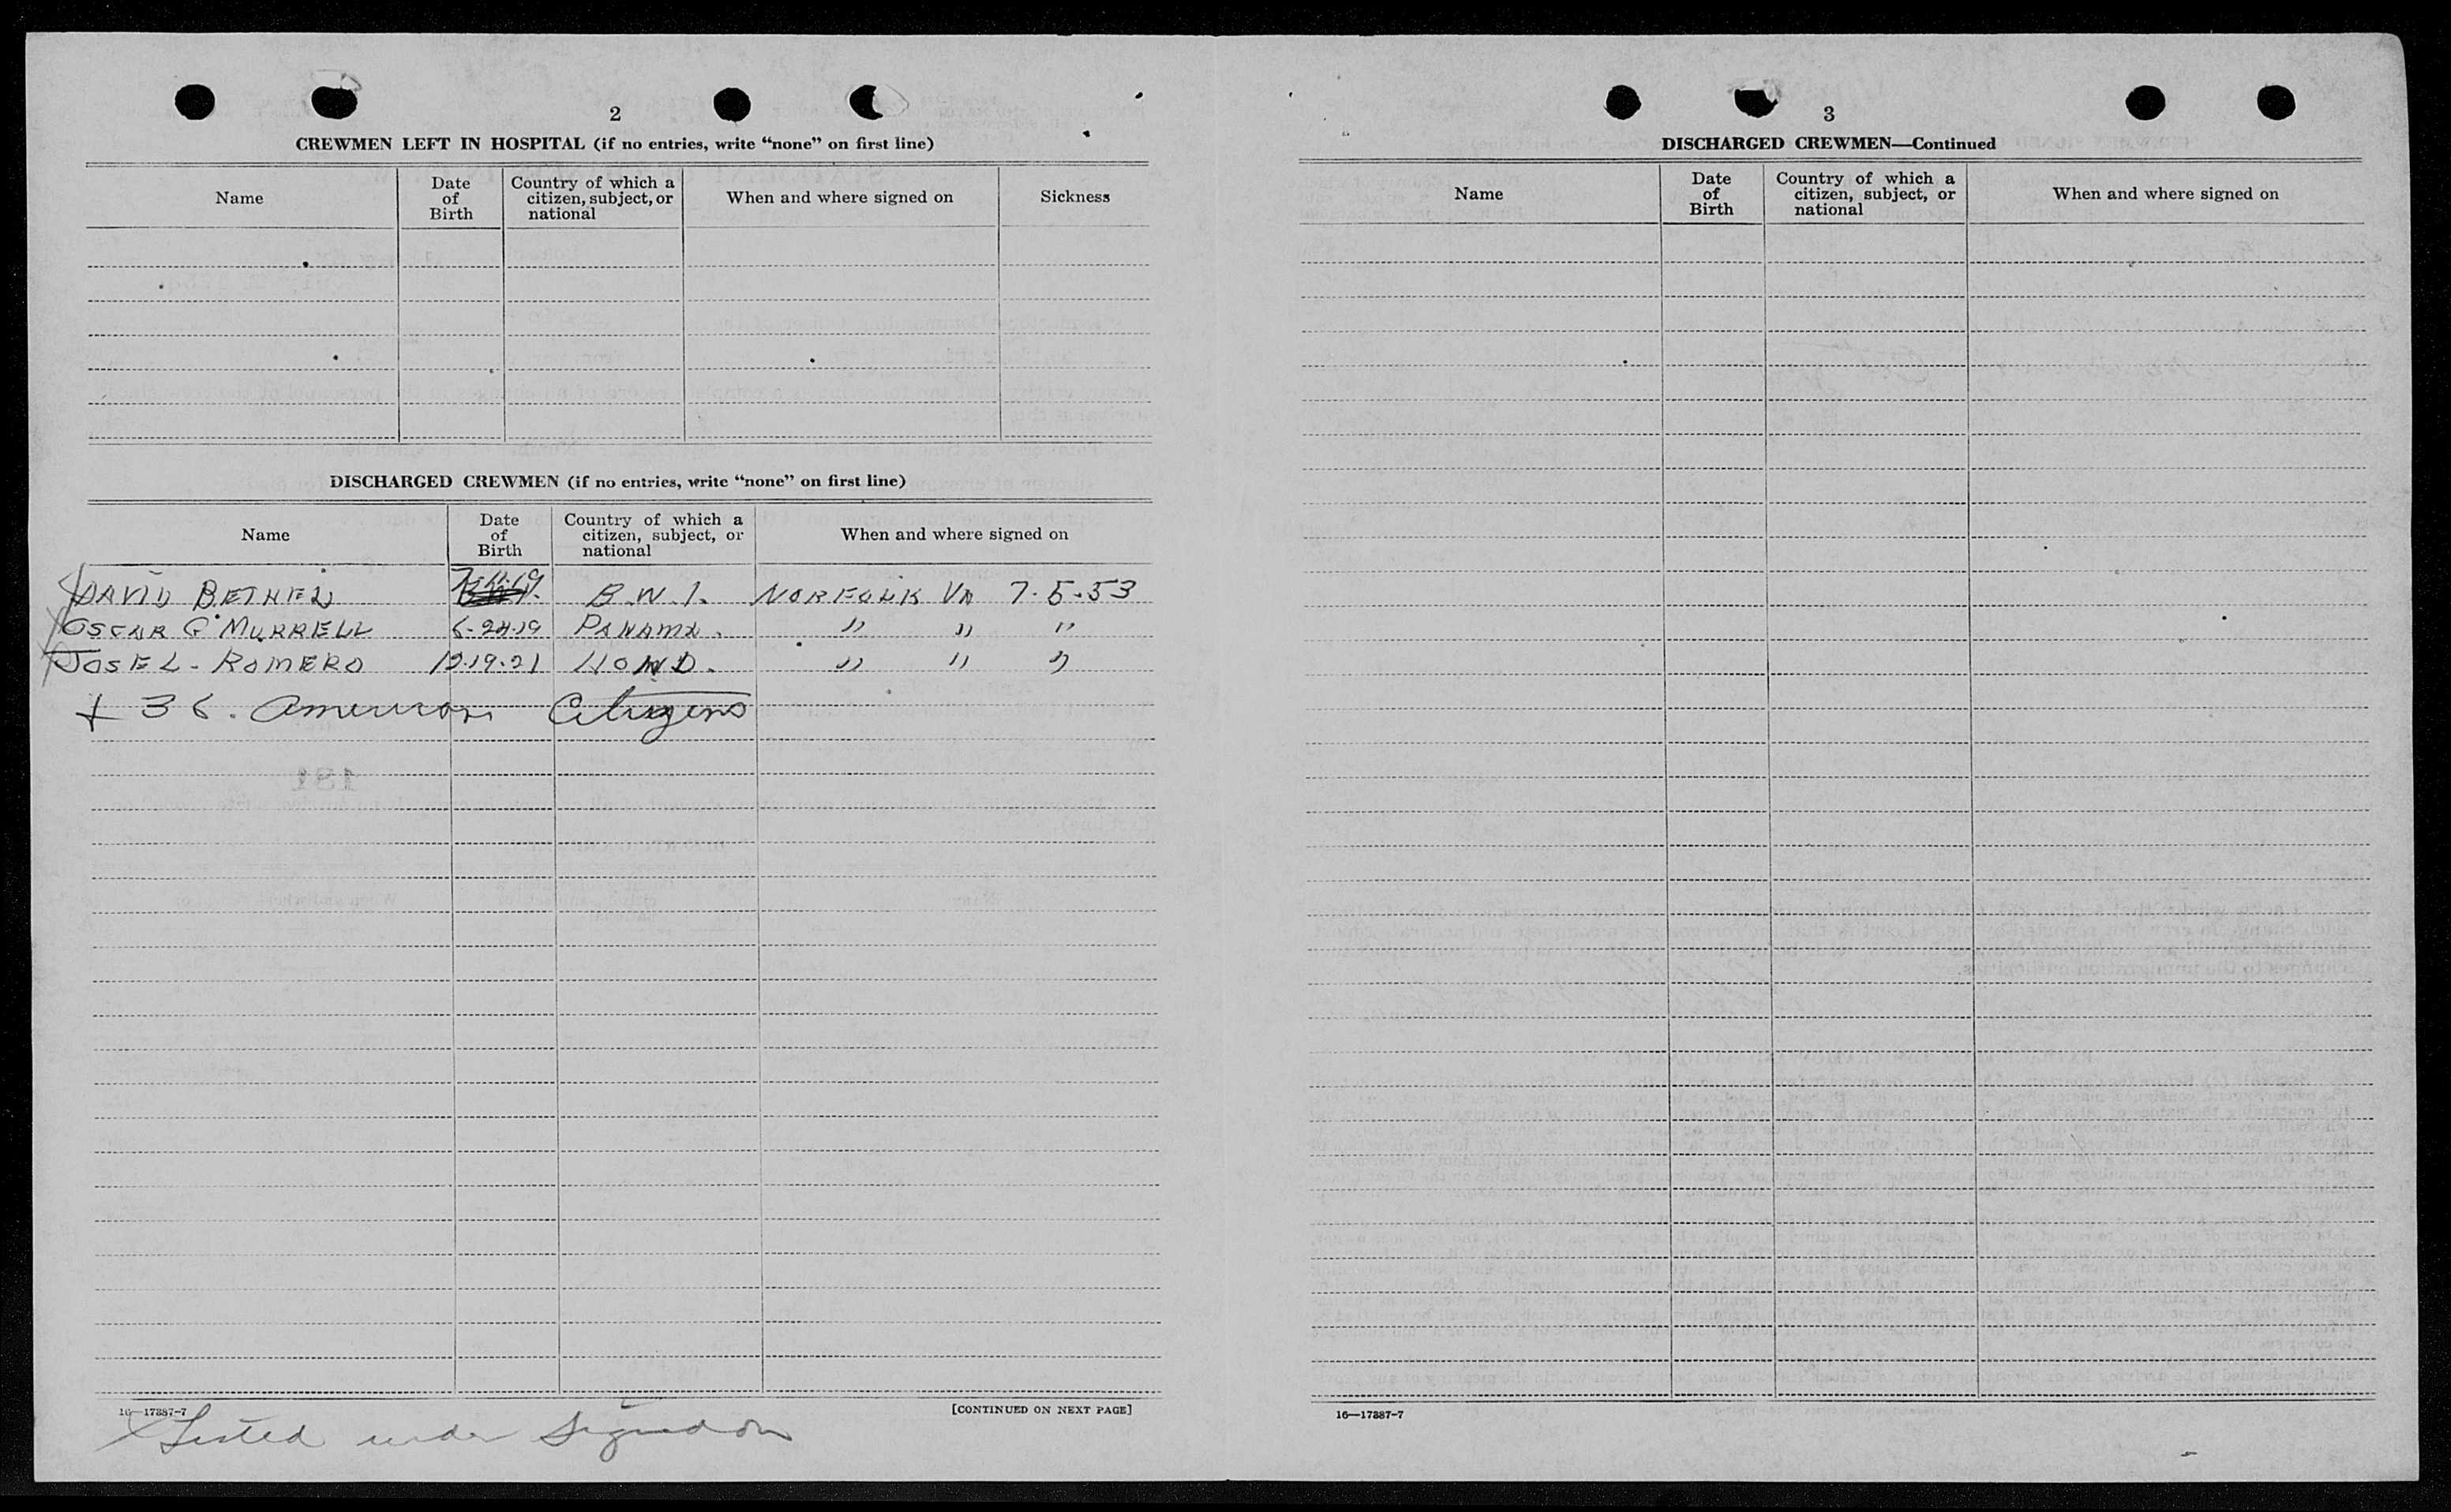 2
CREWMEN LEFT IN HOSPITAL (if no entries, write "none" on first line)
Name
Date of Birth
Country of which a citizen, subject, or national
When and where signed on
Sickness
DISCHARGED CREWMEN (if no entries, write "none" on first line)
Name
Date of Birth
Country of which a citizen, subject, or national
When and where signed on
DAVID BETHEL B.W.I. NORFOLK VA 7.5.53
OSCAR G MURRELL 6-24-19 PANAMA. " " "
JOSE L - ROMERO 12.19.21 HOND. " " "
+ 36. American Citizens
16—17387-7
[CONTINUED ON NEXT PAGE]
X Listed under Signed on
3
DISCHARGED CREWMEN—Continued
Name
Date of Birth
Country of which a citizen, subject, or national
When and where signed on
16—17387-7